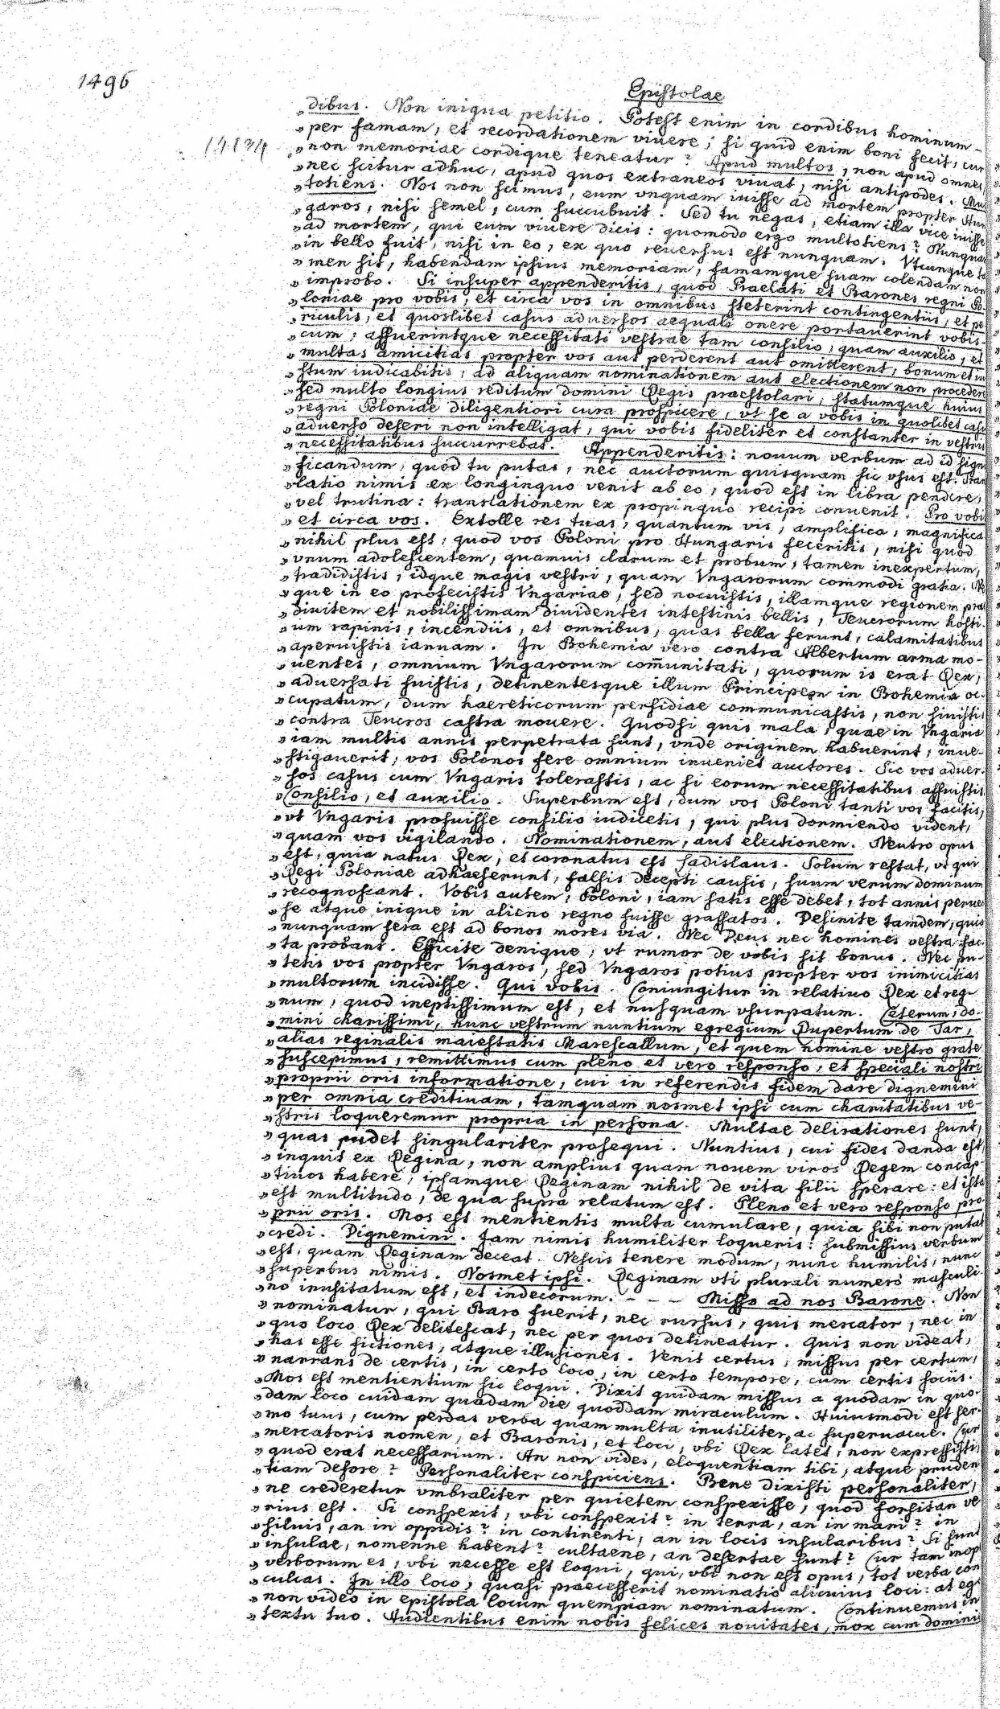 1496
Epistolae
„dibus. Non iniqua petitio. Potest enim in cordibus hominum
„per famam, et recordationem vivere; si quid enim boni fecit, cur
„non memoriae cordique teneatur? Apud multos, non apud omnes,
„nec scitur adhuc, apud quos extraneos vivat, nisi antipodes. Mul
„totiens. Nos non scimus, eum unquam iuisse ad mortem propter Hun
„garos, nisi semel, cum succubuit. Sed tu negas, etiam illa vice iuisse
„ad mortem, qui eum vivere dicis: quomodo ergo multotiens? Nunquam
„in bello fuit, nisi in eo, ex quo reversus est nunquam. Vtcunque ta
„men sit, habendam ipsius memoriam, famamque suam colendam non
„improbo. Si insuper appenderitis, quod Praelati et Barones regni Po
„loniae pro vobis, et circa vos in omnibus steterint contingentiis, et pe
„riculis, et quoslibet casus adversos aequali onere portaverint vobis
„cum, affuerintque necessitati vestrae tam consilio, quam auxilio, et
„multas amicitias propter vos aut perderent aut omitterent, bonum et iu
„stum iudicabitis, ad aliquam nominationem aut electionem non procedere
„sed multo longius reditum domini Regis praestolari, statumque huius
„regni Poloniae diligentiori cura prospicere, vt se a vobis in quolibet casu
„adverso deseri non intelligat, qui vobis fideliter et constanter in vestris
„necessitatibus succurrebat. Appenderitis: novum verbum ad id signi
„ficandum, quod tu putas, nec auctorum quisquam sic vsus est. Tran
„slatio nimis ex longinquo venit ab eo, quod est in libra pendere,
„vel trutina: translationem ex propinquo recipi convenit. Pro vobis
„et circa vos. Extolle res tuas, quantum vis, amplifica, magnifica
„nihil plus est, quod vos Poloni pro Hungaris feceritis, nisi quod
„vnum adolescentem, quamvis clarum et probum, tamen inexpertum,
„tradidistis, idque magis vestri, quam Vngarorum commodi gratia. Ne
„que in eo profecistis Vngariae, sed nocuistis, illamque regionem prae
„divitem et nobilissimam dividentes intestinis bellis, Teucrorum hosti
„um rapinis, incendiis, et omnibus, quas bella ferunt, calamitatibus
„aperuistis ianuam. In Bohemia vero contra Albertum arma mo-
„ventes, omnium Vngarorum com̄unitati, quorum is erat Rex,
„adversati fuistis, detinentesque illum Principem in Bohemia oc
„cupatum, dum haereticorum perfidiae communicastis, non sivistis
„contra Teucros castra movere. Quodsi quis mala, quae in Vngaria
„iam multis annis perpetrata sunt, vnde originem habuerint, inve-
„stigaverit, vos Polonos fere omnium inveniet auctores. Sic vos adver-
„sos casus cum Vngaris tolerastis, ac si eorum necessitatibus affuistis
„Consilio, et auxilio. Superbum est, dum vos Poloni tanti vos facitis,
„vt Vngaris profuisse consilio iudicetis, qui plus dormiendo vident,
„quam vos vigilando. Nominationem, aut electionem. Neutro opus
„est, quia natus Rex, et coronatus est Ladislaus. Solum restat, vt qui
„Regi Poloniae adhaeserunt, falsis decepti causis, suum verum dominum
„recognoscant. Vobis autem, Poloni, iam satis esse debet, tot annis perver
„se atque inique in alieno regno fuisse grassatos. Desinite tandem, quia
„nunquam sera est ad bonos mores via. Nec Deus nec homines vestra fac
„ta probant. Efficite denique, vt rumor de vobis sit bonus. Nec pu-
„tetis vos propter Vngaros, sed Vngaros potius propter vos inimicitias
„multorum incidisse. Qui vobis. Coniungitur in relativo Rex et reg-
„num, quod ineptissimum est, et nusquam vsurpatum. Ceterum, do-
„mini charissimi, hunc vestrum nuntium egregium Rupertum de Tar,
„alias reginalis maiestatis Marescallum, et quem nomine vestro grate
„suscepimus, remittimus cum pleno et vero responso, et speciali nostri
„proprii oris informatione, cui in referendis fidem dare dignemini
„per omnia creditivam, tamquam nosmet ipsi cum charitatibus ve-
„stris loqueremur propria in persona. Multae delirationes sunt,
„quas pudet singulariter prosequi. Nuntius, cui fides danda est,
„inquit ex Regina, non amplius quam novem viros Regem concap
„tivos habere, ipsamque Reginam nihil de vita filii sperare: et ista
„est multitudo, de qua supra relatum est. Pleno et vero responso pro
„prii oris. Mos est mentientis multa cumulare, quia sibi non putat
„credi. Dignemini. Iam nimis humiliter loqueris: submissius verbum
„est, quam Reginam deceat. Nescis tenere modum, nunc humilis, nunc
„superbus nimis. Nosmet ipsi. Reginam vti plurali numero masculi-
„no inusitatum est, et indecorum. - - - Misso ad nos Barone. Non
„nominatur, qui Baro fuerit, nec rursus, quis mercator, nec in
„quo loco Rex delitescat, nec per quos detineatur. Quis non videat,
„has esse fictiones, atque illusiones. Venit certus, missus per certum,
„narrans de certis, in certo loco, in certo tempore, cum certis sociis.
„Mos est mentientium sic loqui. Dixit quidam missus a quodam in quo
„dam loco cuidam quadam die quoddam miraculum. Huiusmodi est ser-
„mo tuus, cum perdas verba quam multa inutiliter, ac supervacue. Cur
„mercatoris nomen, et Baronis, et loci, vbi Rex latet, non expressisti
„quod erat necessarium. An non vides, eloquentiam tibi, atque pruden
„tiam deesse? Personaliter conspiciens. Bene dixisti personaliter,
„ne crederetur vmbraliter per quietem conspexisse, quod forsitan ve
„rius est. Si conspexit, vbi conspexit? in terra, an in mari? in
„silvis, an in oppidis? in continenti, an in locis insularibus? Si sunt
„insulae, nomenne habent? cultaene, an desertae sunt? Cur tam inop
„verborum es, vbi necesse est loqui, qui, vbi non est opus, tot verba con
„culcas. In illo loco, quasi praecesserit nominatio alicuius loci: at ego
„non video in epistola locum quempiam nominatum. Continuemus in
„textu tuo. Audientibus enim nobis felices novitates, mox cum dominis